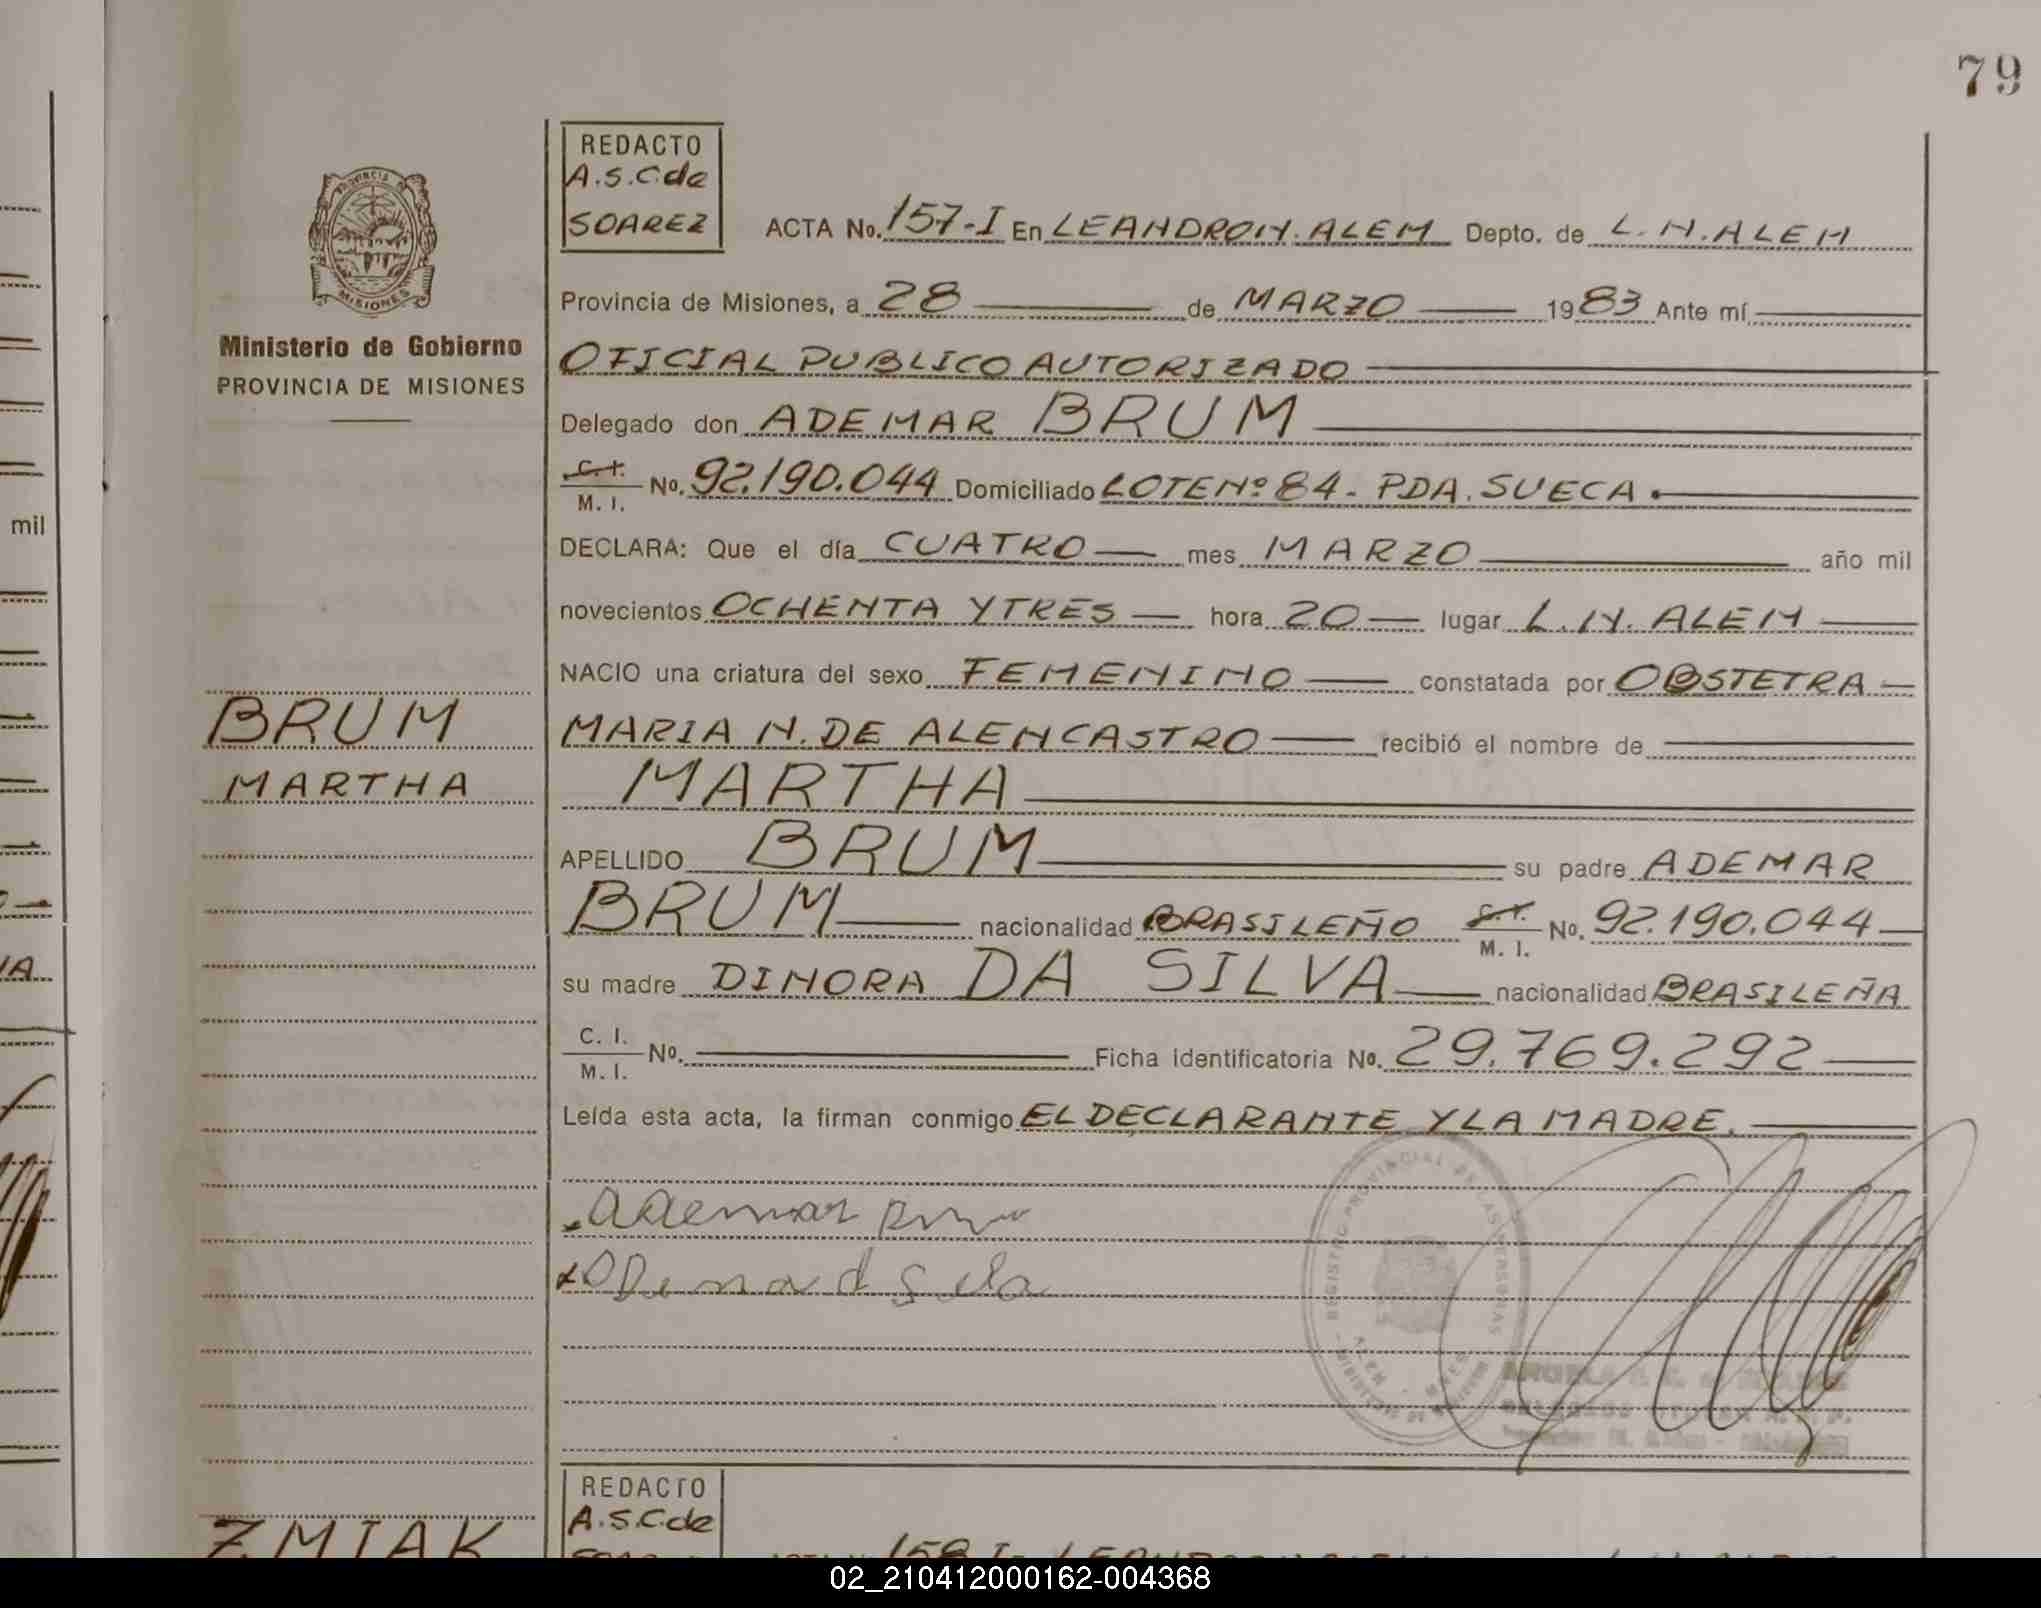 79
REDACTO
A.S.C. de
SOAREZ
PROVINCIA DE
MISIONES
Ministerio de Gobierno
PROVINCIA DE MISIONES
ACTA No. 157-I En LEANDRO N. ALEM Depto. de L. N. ALEM
Provincia de Misiones, a 28 de MARZO 1983 Ante mí
OFICIAL PUBLICO AUTORIZADO
Delegado don ADEMAR BRUM
C. I.
M. I. No. 92.190.044 Domiciliado LOTE Nº 84 - PDA. SUECA.
DECLARA: Que el día CUATRO mes MARZO año mil
novecientos OCHENTA Y TRES hora 20 lugar L. N. ALEM
NACIO una criatura del sexo FEMENINO constatada por OBSTETRA
MARIA N. DE ALENCASTRO recibió el nombre de
MARTHA
APELLIDO BRUM su padre ADEMAR
BRUM nacionalidad BRASILEÑO C. I.
M. I. No. 92.190.044
su madre DINORA DA SILVA nacionalidad BRASILEÑA
C. I.
M. I. No. Ficha identificatoria No. 29.769.292
Leída esta acta, la firman conmigo EL DECLARANTE Y LA MADRE.
BRUM
MARTHA
Ademar
REGISTRO PROVINCIAL DE LAS PERSONAS
mil
REDACTO
A.S.C. de
ZMIAK
02_210412000162-004368